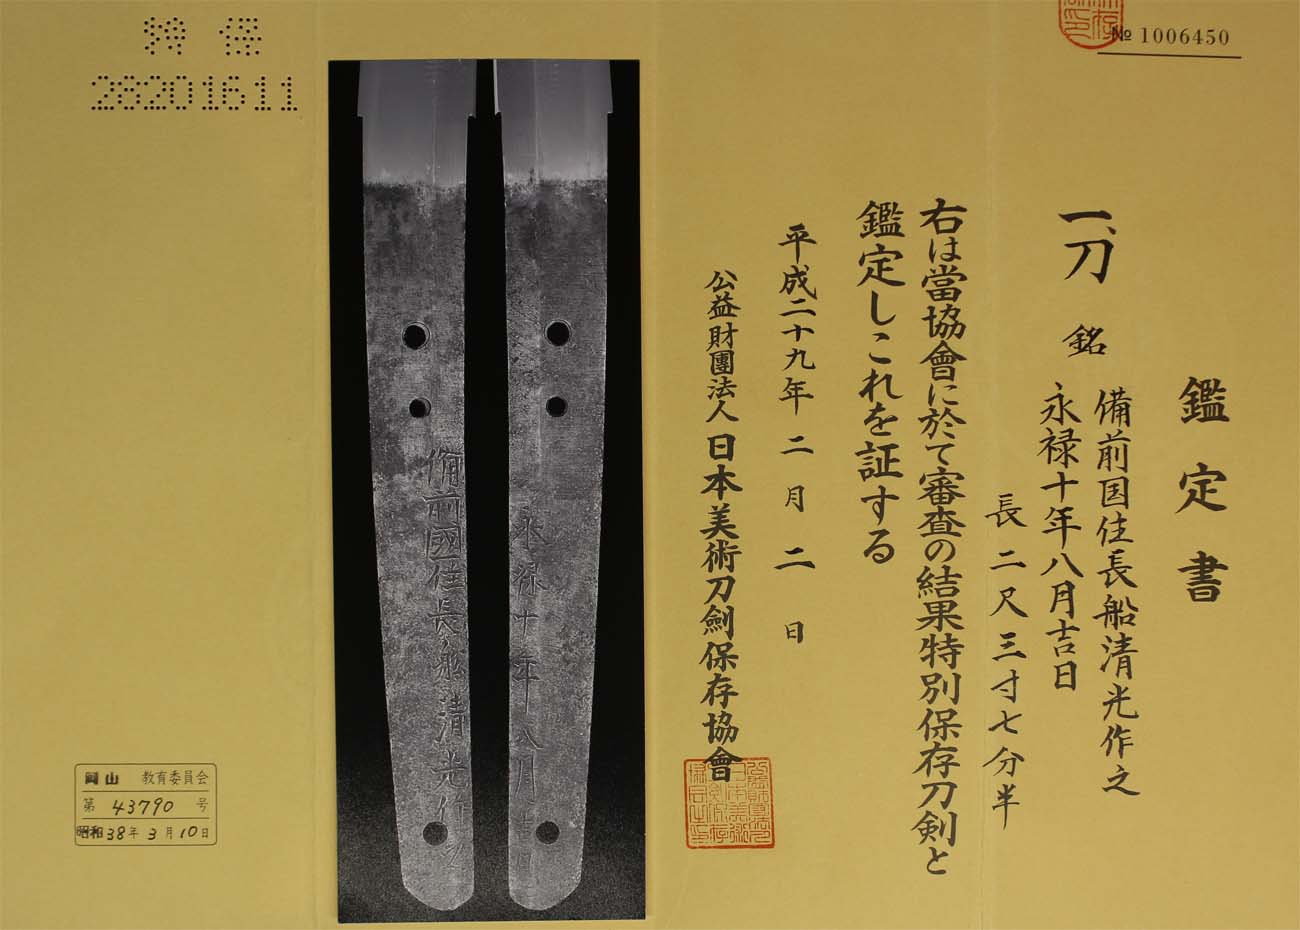 特 保
28201611
№ 1006450
鑑定書
一、刀 銘 備前国住長船清光作之
永禄十年八月吉日
長 二尺三寸七分半
右は當協會に於て審査の結果特別保存刀剣と
鑑定しこれを証する
平成二十九年 二月 二日
公益財團法人 日本美術刀劍保存協會
永禄十年八月吉日
備前國住長船清光作之
岡山 教育委員会
第 43790 号
昭和38年3月10日